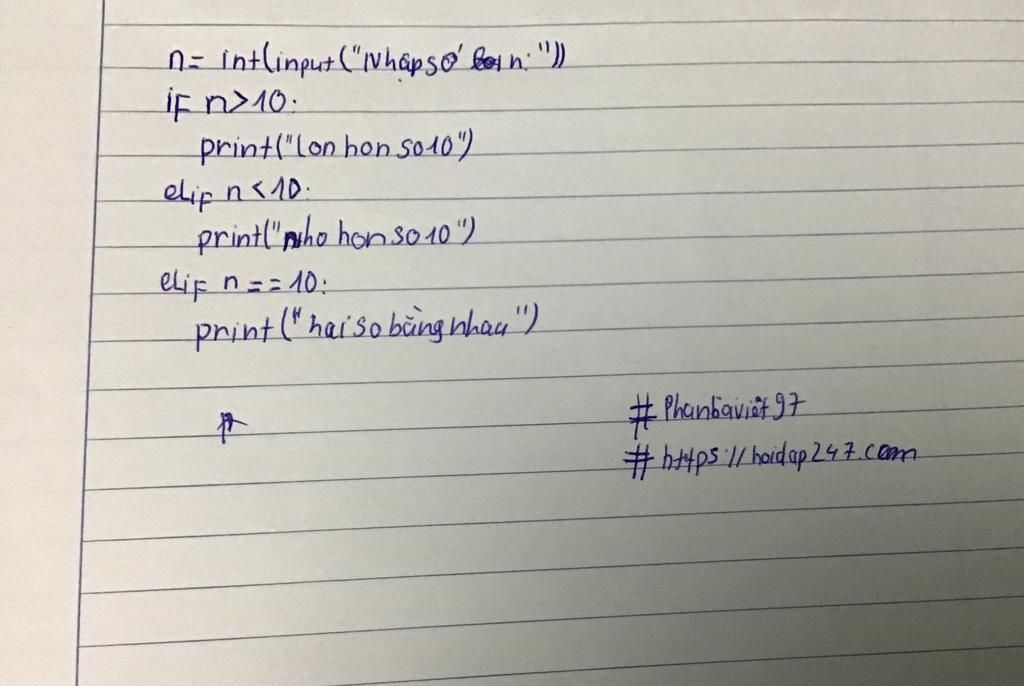 n= int(input("Nhập số n: "))
if n>10:
print("lon hon so 10")
elif n<10:
print("nho hon so 10")
elif n==10:
print("hai so bằng nhau")
# Phanbaviet97
# https://hoidap247.com